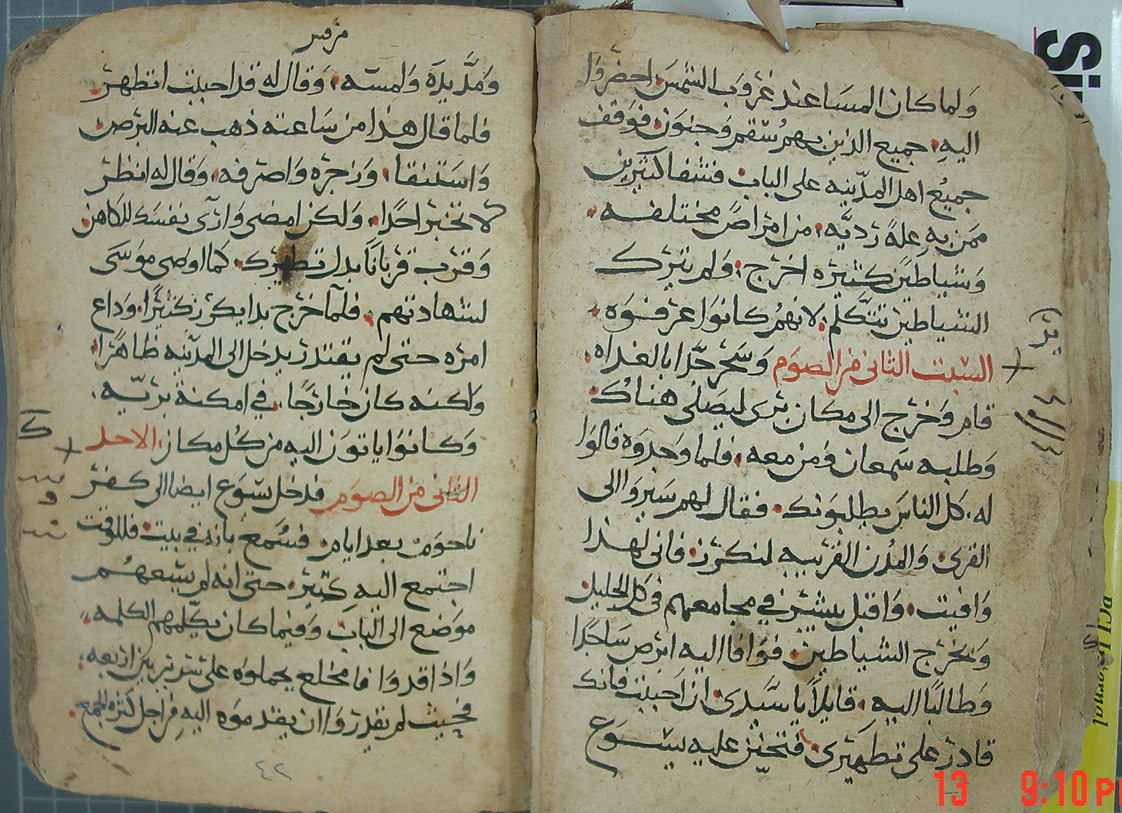 ولما كان المسا عند غروب الشمس احضروا
اليه جميع الذين بهم سقم وجنون فوقف
جميع اهل المدينه على الباب فشفا كثيرين
ممن به علة رديه من امراض مختلفه
وشياطين كثيره اخرج ولم يترك
الشياطين تتكلم لانهم كانوا عرفوه
السبت الثانى من الصوم وسحر جدا بالغداه
قام وخرج الى مكان ثرى ليصلى هناك
وطلبه سمعان ومن معه فلما وجدوه قالوا
له كل الناس يطلبونك فقال لهم سيروا الى
القرى والمدن القريبه لنكرز فانى لهذا
وافيت واقبل يبشر في مجامعهم فى كل الجليل
ويخرج الشياطين فوافا اليه ابرص ساجدا
وطالبا اليه قايلا يا سيدى ان احببت فانك
قادر على تطهيرى فتحنن عليه يسوع
مرقس
ومد يده ولمسه وقال له قد احببت اتطهر
فلما قال هذا من ساعته ذهب عنه البرص
واستنقا وزجره واصرفه وقال له انظر
لا تخبر احدا ولكن امضى وارى نفسك للكاهن
وقرب قربانا بدل تطهيرك كما اوصى موسى
لشهادتهم فلما خرج بدا يكرز كثيرا وداع
امره حتى لم يقتدر يدخل الى المدينه ظاهرا
ولاكنه كان خارجا في امكنة بريه
وكانوا ياتون اليه من كل مكان الاحد
الثانى من الصوم فدخل يسوع ايضا الى كفر
ناحوم بعد ايام فسمع بانه في بيت فللوقت
اجتمع اليه كثير حتى انه لم يسعهم
موضع الى الباب وفيما كان يكلمهم الكلمه
واذا قدوا فا مخلع يحملوه على سرير بين اربعه
فحيث لم يقدروا ان يقدموه اليه من اجل كثره الجمع
٤٢
13 9:10 P